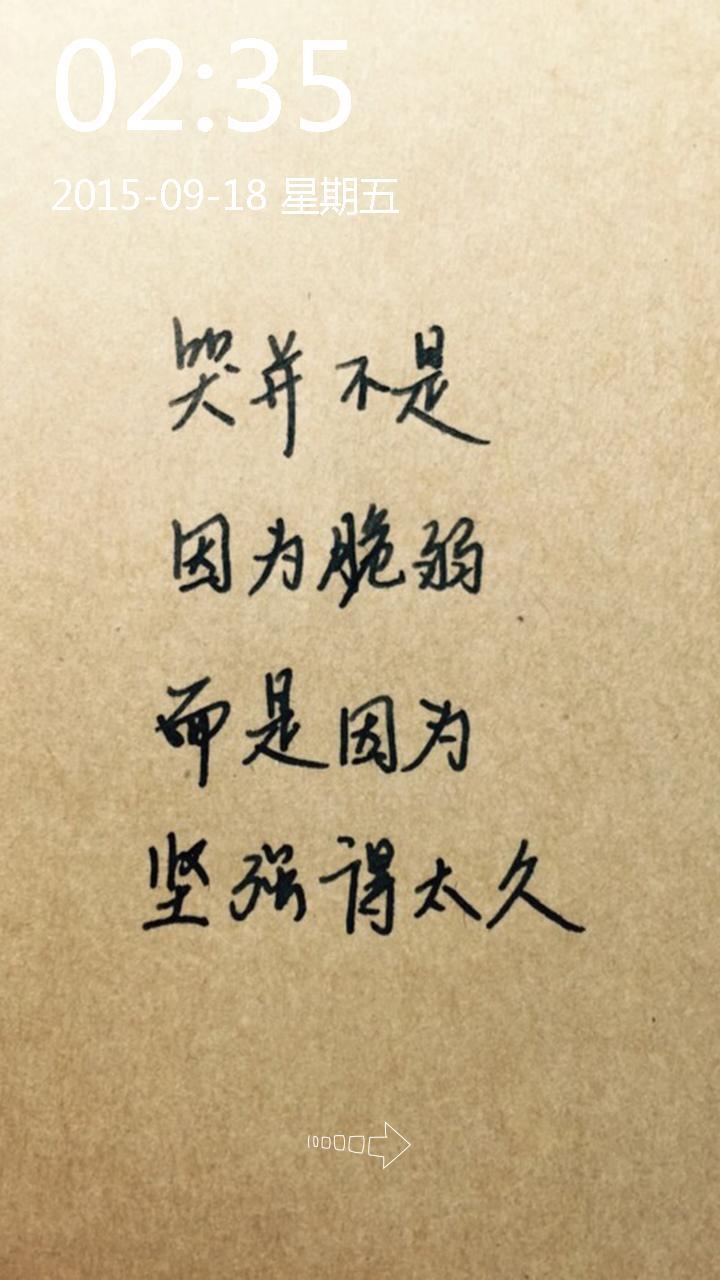 02:35
2015-09-18 星期五
哭并不是
因为脆弱
而是因为
坚强得太久